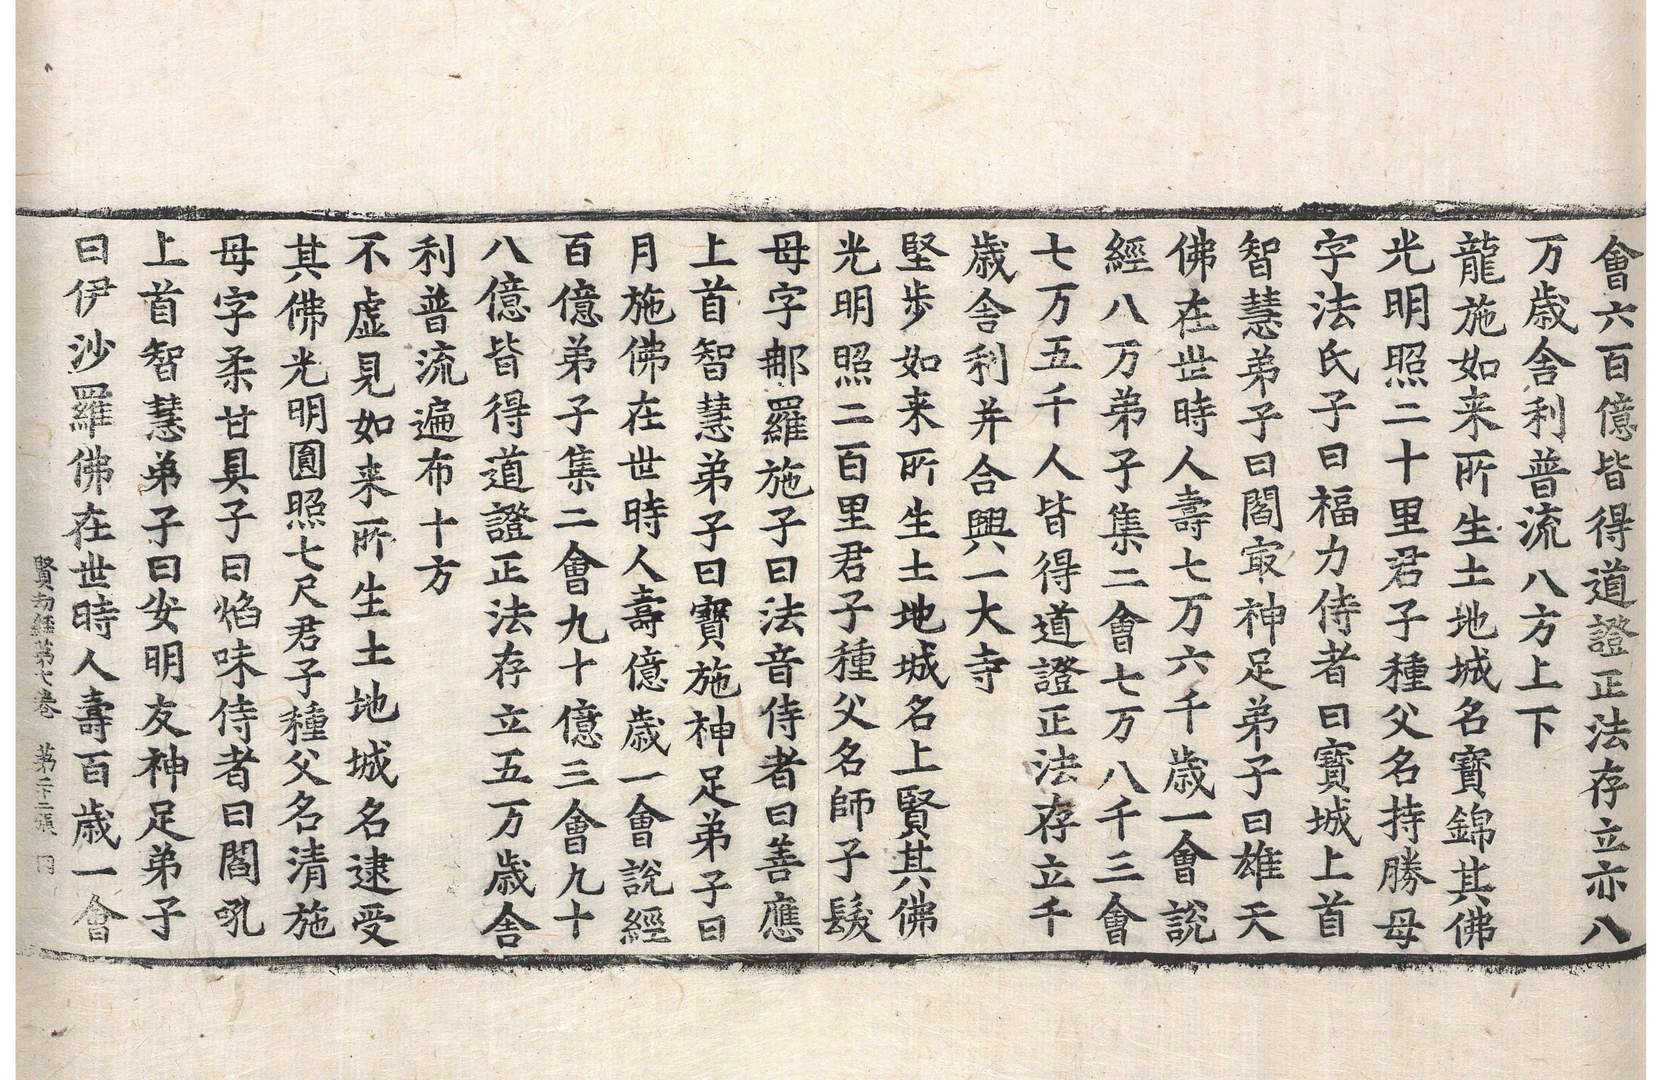 會六百億皆得道證正法存立亦八
万歲舍利普流八方上下
龍施如来所生土地城名寶錦其佛
光明照二十里君子種父名持勝母
字法氏子曰福力侍者曰寶城上首
智慧弟子曰閻㝡神足弟子曰雄天
佛在世時人壽七万六千歲一會說
經八万弟子集二會七万八千三會
七万五千人皆得道證正法存立千
歲舍利并合興一大寺
堅步如来所生土地城名上賢其佛
光明照二百里君子種父名師子髮
母字郍羅施子曰法音侍者曰善應
上首智慧弟子曰寶施神足弟子曰
月施佛在世時人壽億歲一會說經
百億弟子集二會九十億三會九十
八億皆得道證正法存立五万歲舍
利普流遍布十方
不虛見如来所生土地城名逮受
其佛光明圓照七尺君子種父名清施
母字柔甘具子曰焰味侍者曰閻吼
上首智慧弟子曰安明友神足弟子
曰伊沙羅佛在世時人壽百歲一會
賢劫經第七卷 第二十二張